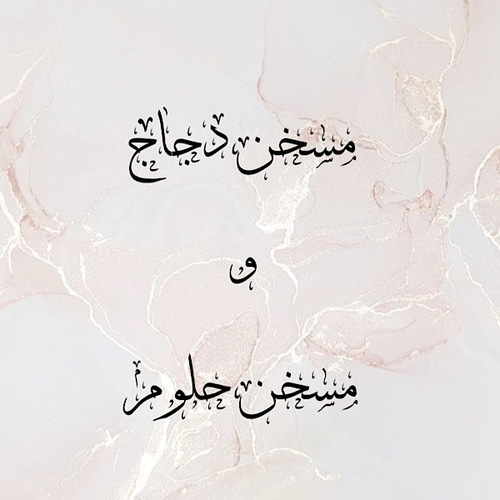 مسخن دجاج
و
مسخن حلوم